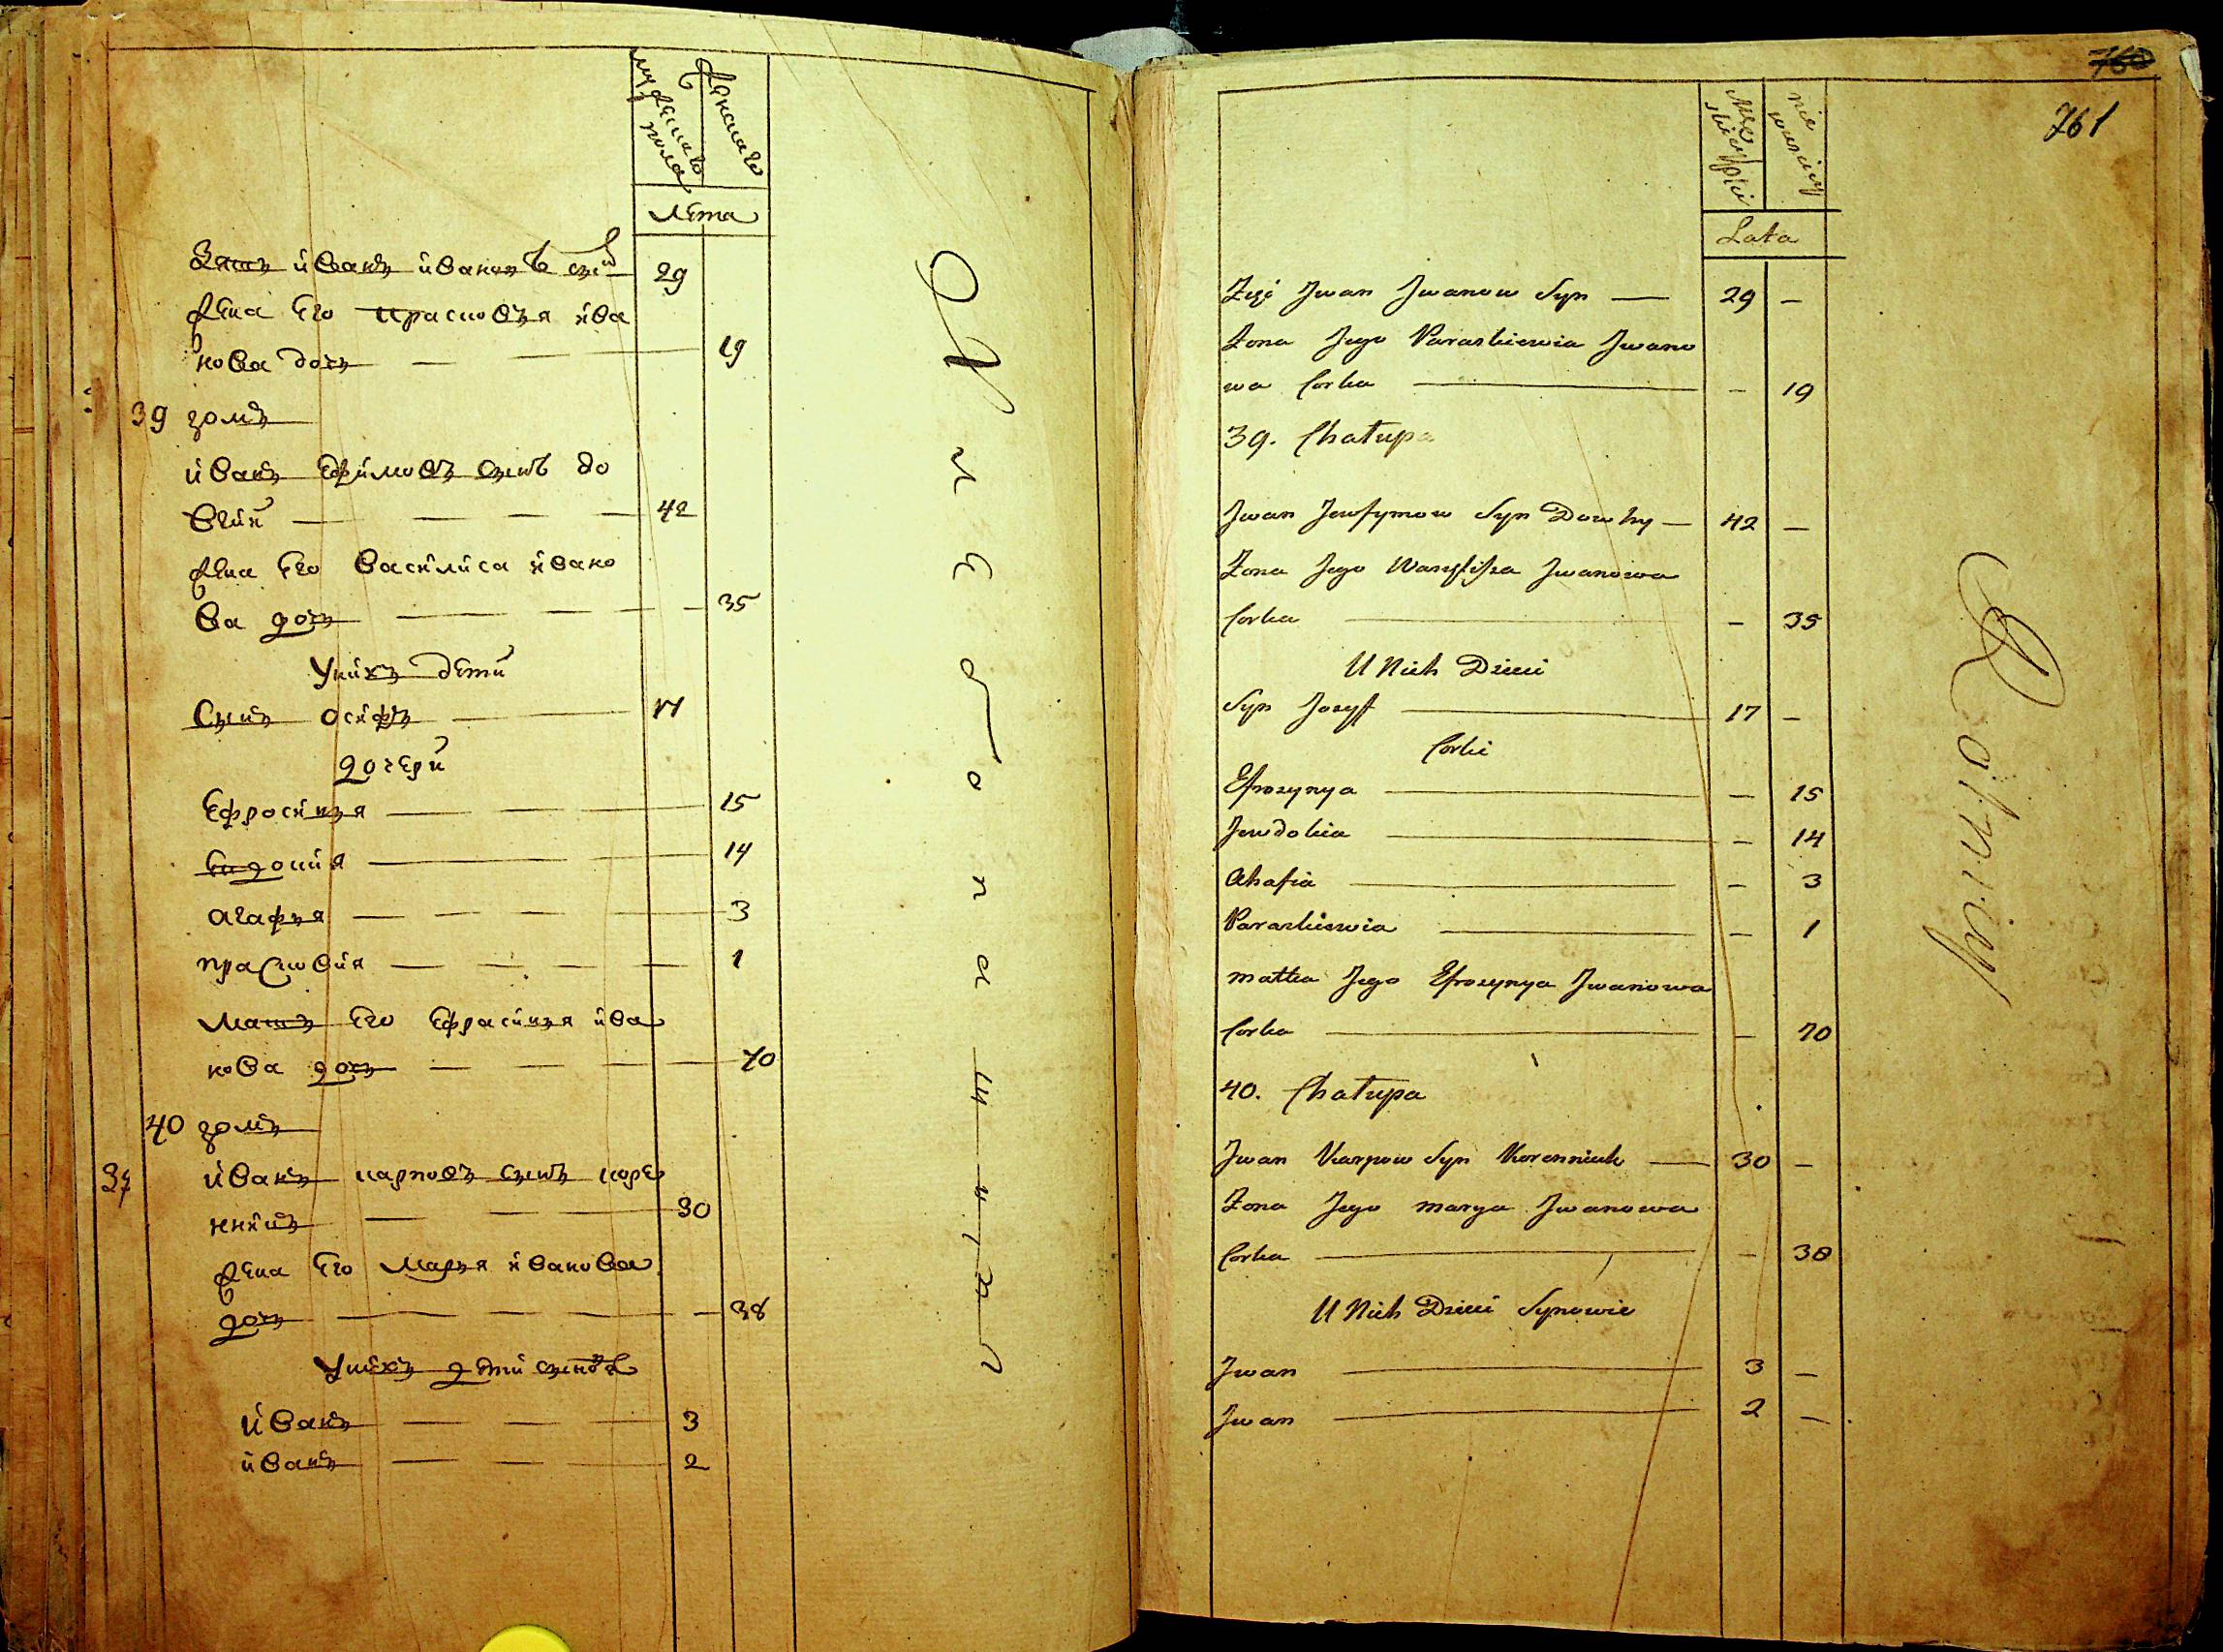 мужеска пола
женска
Лета
Зять иванъ ивановъ сынъ 29
жена Его прасковъя ива
нова дочъ — — 19
39 домъ
иванъ Ефимовъ сынъ до
вгий — — — — 42
жена Его василиса ивано
ва дочъ — — — — 35
У нихъ дети
Сынъ осифъ — 17
дочери
Ефросинъя — — — 15
Евдокия — — 14
агафъя — — — — 3
прасковия — — — — 1
мать Его Ефрасинъя ива
нова дочъ — — — — 70
40 домъ
37 иванъ карповъ сынъ коре
ннихъ — — — 30
жена Его маръя иванова
дочъ — — — — 38
У нихъ дети сыновъя
иванъ — — — 3
иванъ — — — 2
760
761
Lata
Zięć Jwan Jwanow Syn — 29 —
Zona Jego Paraskiewia Jwano
wa Corka — — 19
39. Chałupa
Jwan Jewfymow Syn Dowhy — 42 —
Zona Jego Wasylissa Jwanowa
Corka — — 35
U Nich Dzieci
Syn Jozyf — 17 —
Corki
Efrozynya — — 15
Jewdokia — — 14
Ahafia — — 3
Paraskiewia — — 1
matka Jego Efrozynya Jwanowa
Corka — — 70
40. Chałupa
Jwan Karpow Syn Korenniuk — 30 —
Zona Jego marya Jwanowa
Corka — — 38
U Nich Dzieci Synowie
Jwan — 3 —
Jwan — 2 —